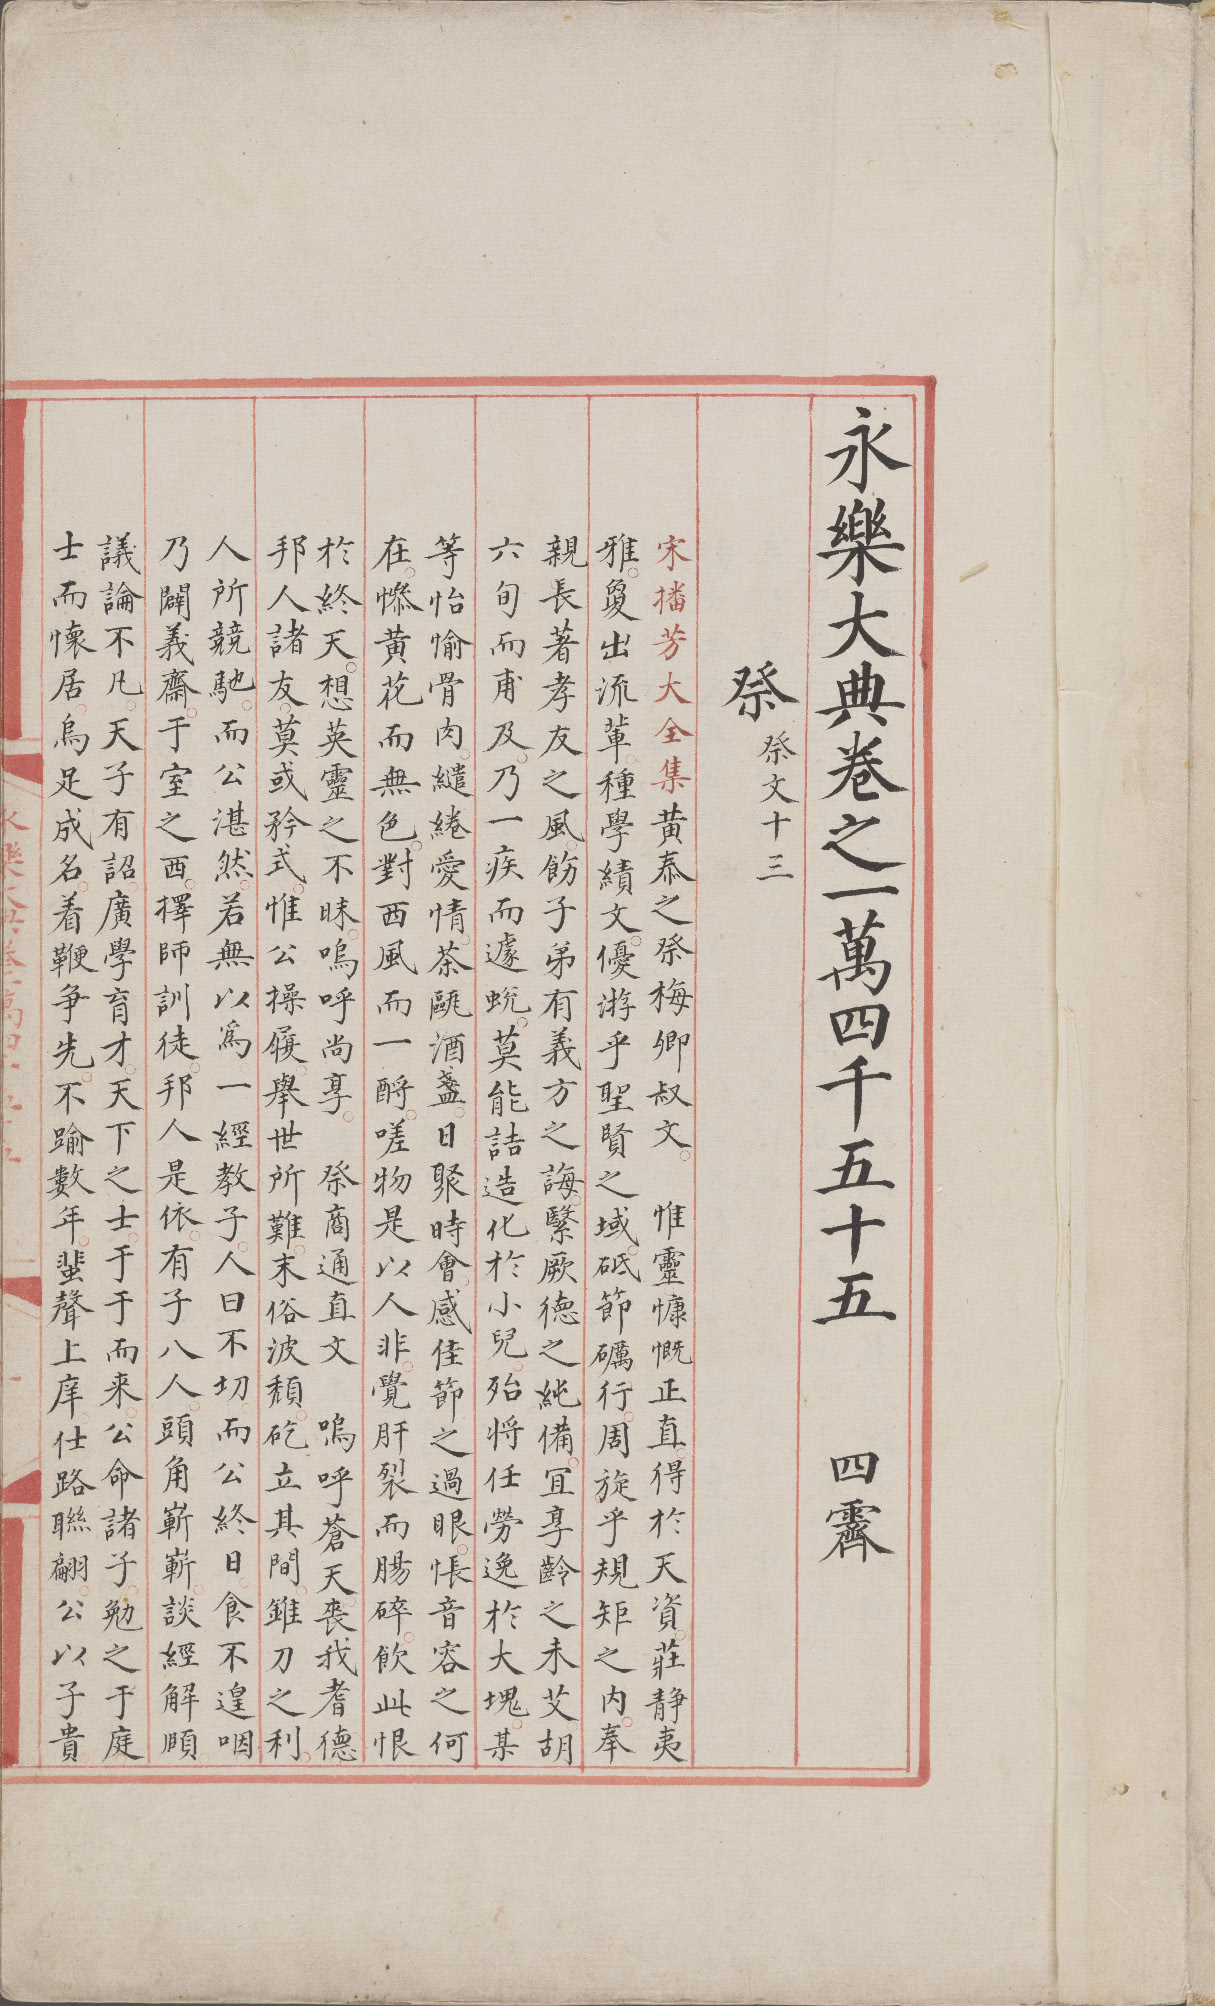 永樂大典卷之一萬四千五十五　四霽
祭祭文十三
宋播芳大全集黄㤗之祭梅卿叔文。　惟靈慷慨正直。得於天資。莊静夷
雅。敻出流輩。種學績文。優游乎聖賢之域。砥節礪行。周旋乎規矩之内。奉
親長著孝友之風。飭子弟有義方之誨。繄厥德之純備。宜享齡之未艾。胡
六旬而甫及。乃一疾而遽蛻。莫能詰造化於小兒。殆将任勞逸於大塊。某
等怡愉骨肉。繾綣愛情。茶甌酒盞。日聚時會。感佳節之過眼。悵音容之何
在。慘黄花而無色。對西風而一酹。嗟物是以人非。覺肝裂而腸碎。飲此恨
於終天。想英靈之不昧。嗚呼尚享。　祭商通直文　嗚呼蒼天。喪我耆德。
邦人諸友。莫或矜式。惟公操履。舉世所難。末俗波頹。矻立其間。錐刀之利。
人所競馳。而公湛然。若無以爲。一經教子。人曰不切。而公終日。食不遑咽。
乃闢義齋。于室之西。擇師訓徒。邦人是依。有子八人。頭角嶄嶄。談經解頤。
議論不凡。天子有詔。廣學育才。天下之士。于于而来。公命諸子。勉之于庭。
士而懷居。烏足成名。着鞭争先。不踰數年。蜚聲上庠。仕路聯翩。公以子貴。